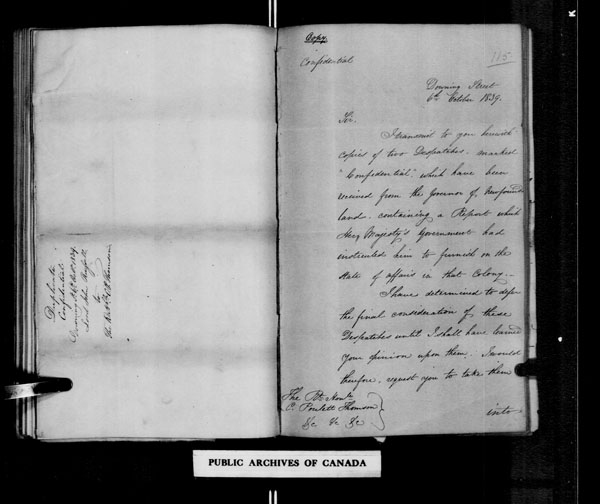 Duplicate
Confidential
Downing St 6 Oct 1839.
Lord John Russell
to
The Rt Hble C P Thomson
Copy
115
Confidential
Downing Street
6th October 1839.
Sir.
I transmit to you herewith
copies of two Despatches. marked
"Confidential", which have been
received from the Governor of, Newfound-
land. containing a Report which
Her Majesty's Government had
instructed him to furnish on the
State of affairs in that Colony.-
I have determined to defer
the final consideration of these
Despatches until I shall have learned
your opinion upon them. I would
therefore, request you to take them
The Rt Honble
C. Poulett Thomson
&c &c &c
into
PUBLIC ARCHIVES OF CANADA